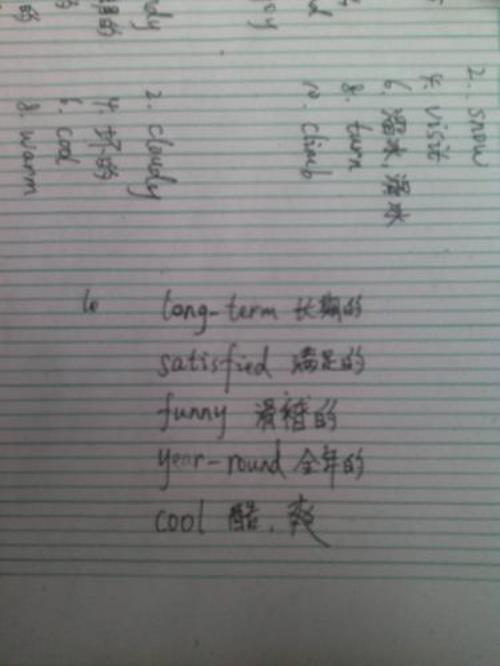 2. snow
4. visit
6. 溜冰 滑冰
8. turn
10. climb
2. cloudy
4. 坏的
6. cool
8. warm
long-term 长期的
satisfied 满足的
funny 滑稽的
year-round 全年的
cool 酷，爽